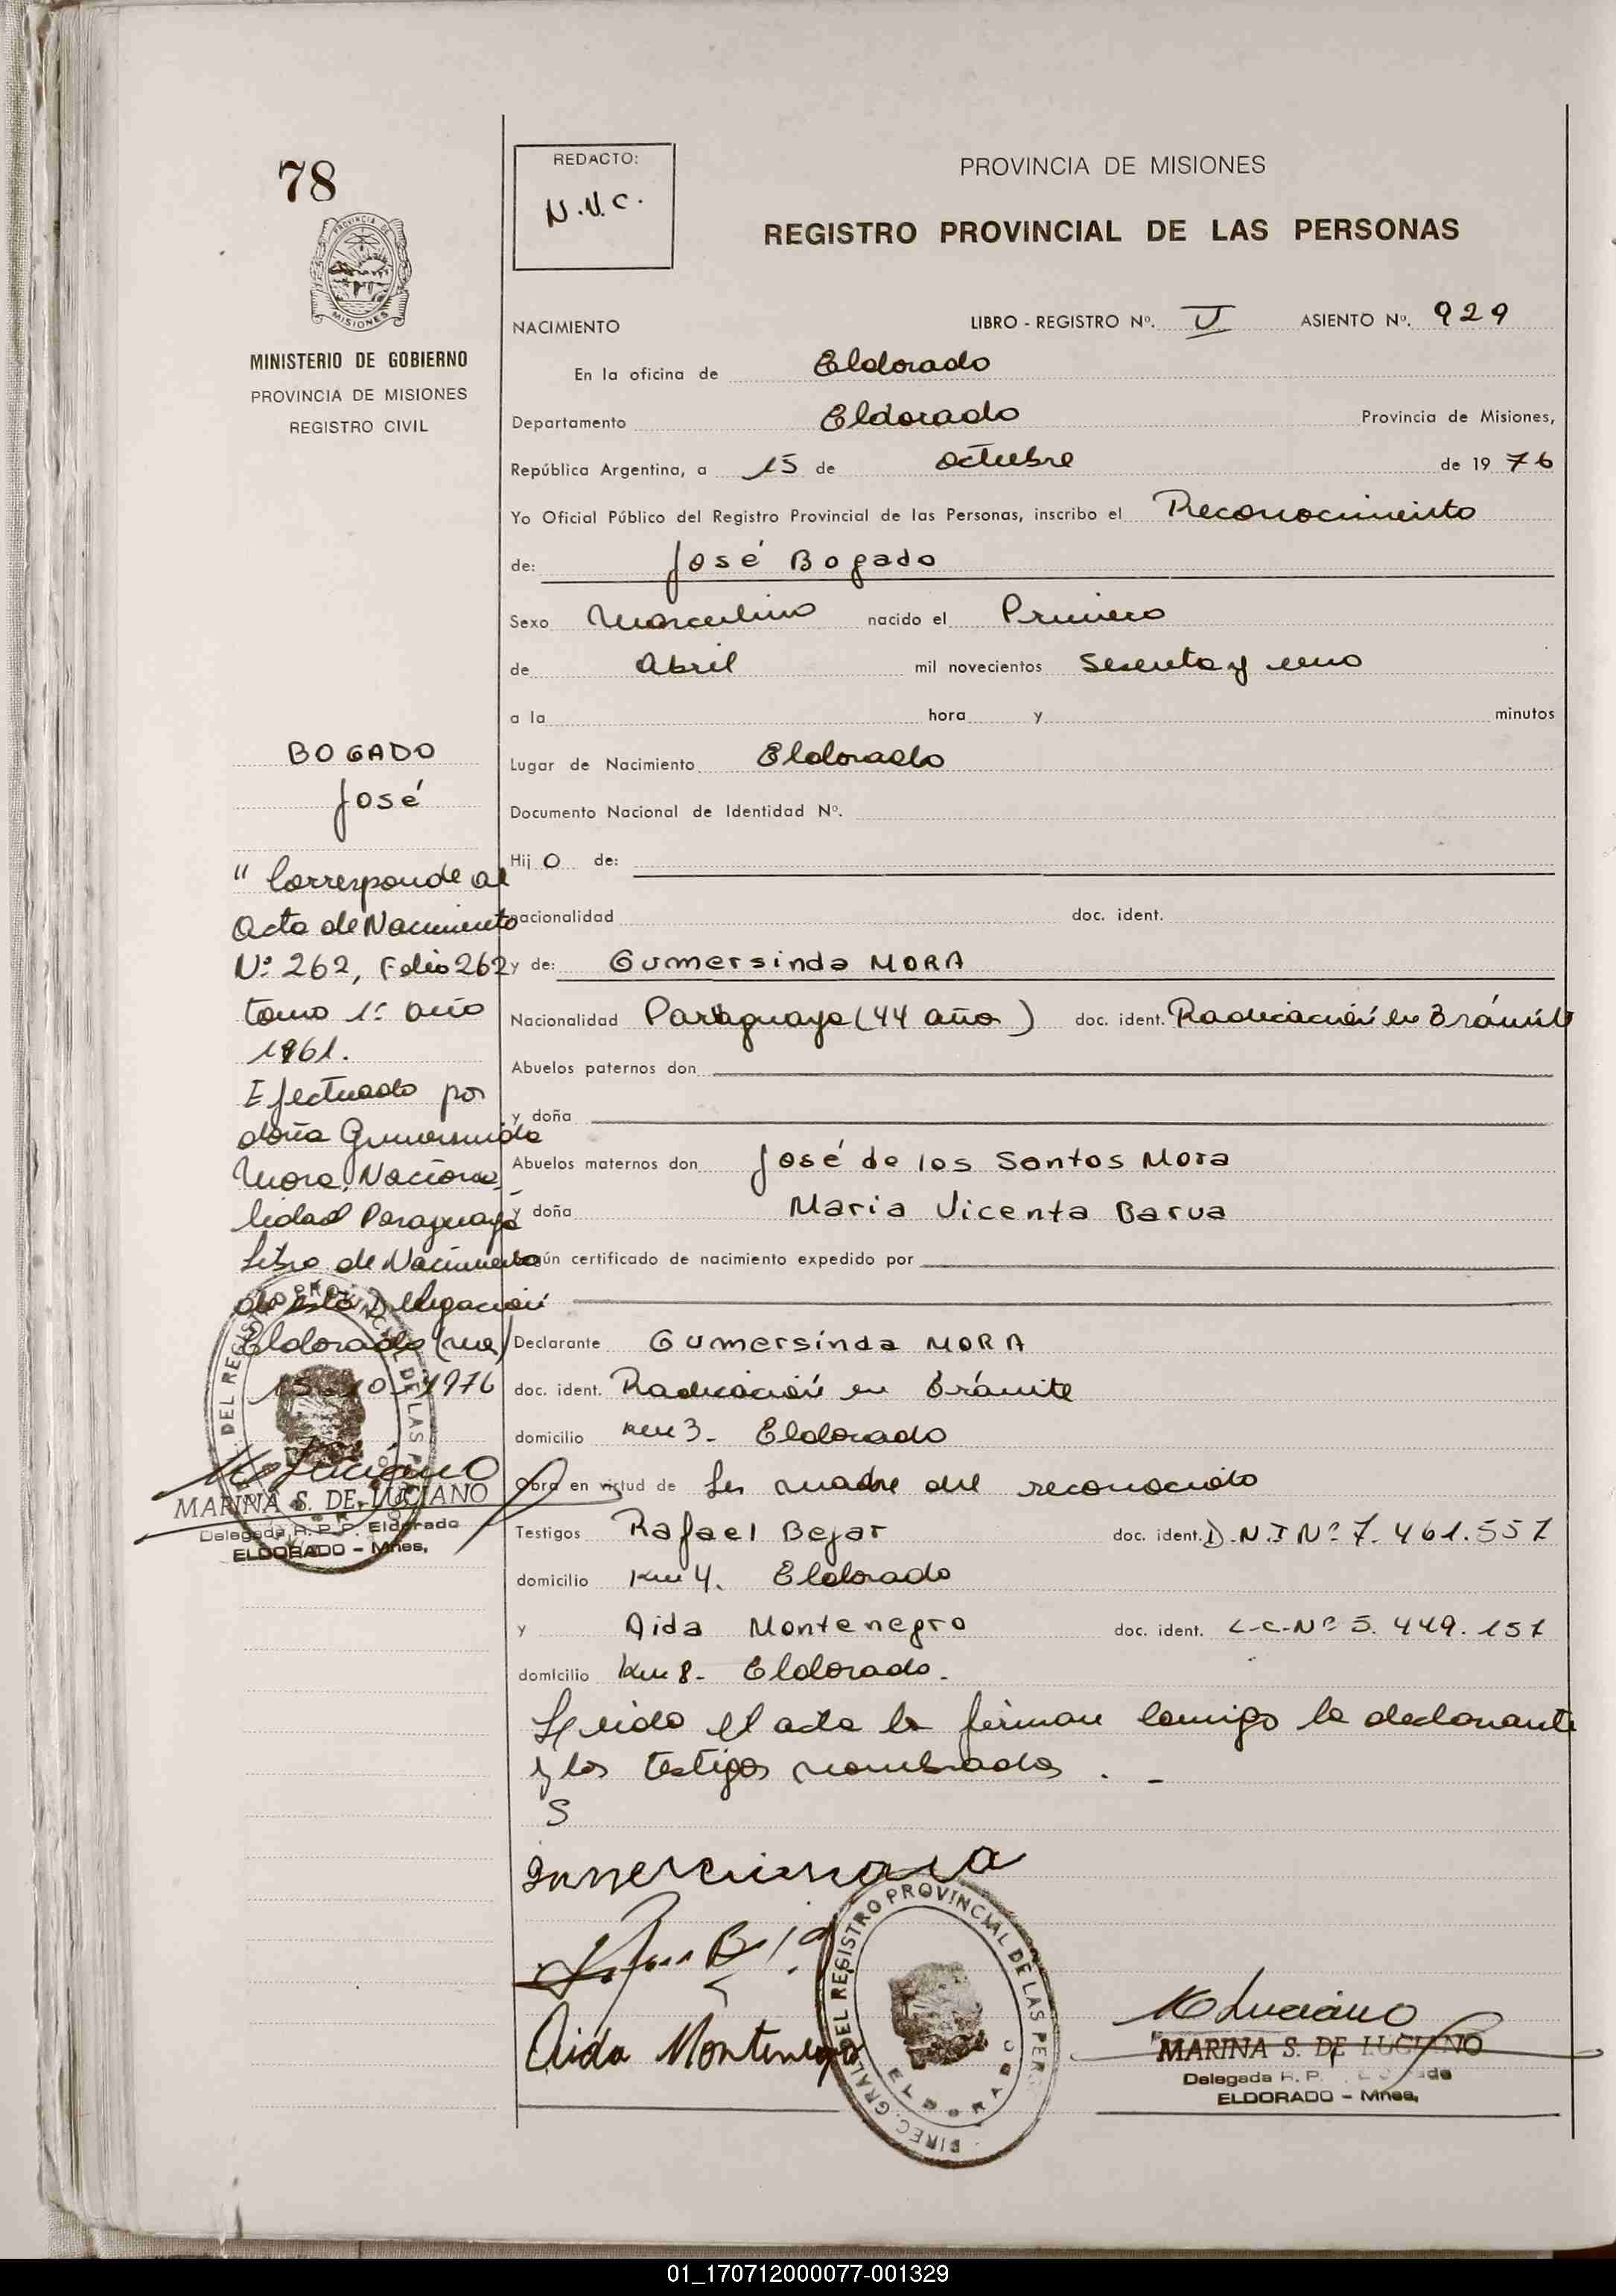 78
MINISTERIO DE GOBIERNO
PROVINCIA DE MISIONES
REGISTRO CIVIL
REDACTO:
N.V.C.
PROVINCIA DE MISIONES
REGISTRO PROVINCIAL DE LAS PERSONAS
NACIMIENTO LIBRO - REGISTRO Nº. ASIENTO Nº. 929
En la oficina de Eldorado
Departamento Eldorado Provincia de Misiones,
República Argentina, a 15 de octubre de 19 76
Yo Oficial Público del Registro Provincial de las Personas, inscribo el Reconocimiento
de: José Bogado
Sexo Masculino nacido el Primero
de Abril mil novecientos sesenta y uno
a la hora y minutos
Lugar de Nacimiento Eldorado
Documento Nacional de Identidad Nº.
Hij o de:
nacionalidad doc. ident.
y de: Gumersinda MORA
Nacionalidad Paraguaya (44 año ) doc. ident. Radicación en trámite
Abuelos paternos don
y doña
Abuelos maternos don José de los Santos Mora
y doña Maria Vicenta Barua
según certificado de nacimiento expedido por
Declarante Gumersinda MORA
doc. ident. Radicación en trámite
domicilio Km 3- Eldorado
Obra en virtud de Ser madre del reconocido
Testigos Rafael Bejar doc. ident. D.N.I Nº 7.461.557
domicilio Km 4. Eldorado
y Aida Montenegro doc. ident. L-C-Nº 5.449.151
domicilio Km 8- Eldorado.
Leida el acta la firman conmigo la declarante
y los testigos nombrados . -
S
Aida Montenegro
DIREC. GRAL. DEL REGISTRO PROVINCIAL DE LAS PERS
ELDORADO
M Luciano
MARINA S. DE LUCIANO
Delegada R. P.
ELDORADO - Mnes,
BOGADO
José
" Corresponde al
Acta de Nacimiento
Nº 262, Folio 262
tomo 1º año
1961.
Efectuado por
doña Gumersinda
Mora, Naciona
lidad Paraguaya
Libro de Nacimiento
de esta Delegación
Eldorado (Mnes)
15-10-1976
M Luciano
MARINA S. DE LUCIANO
Delegada R. P. P. Eldorado
ELDORADO - Mnes,
01_170712000077-001329